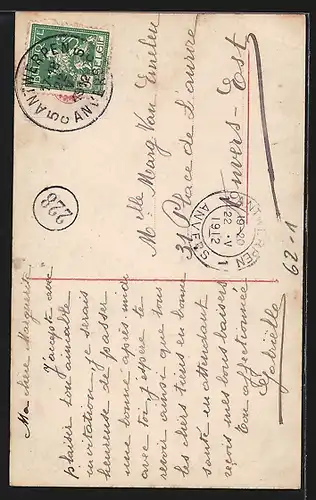 Ma chère Marguerite
J'accepte avec
plaisir ton aimable
invitation, je serais
heureuse de passer
une bonne après midi
avec toi, j'espère te
revoir ainsi que tous
les chers tiens en bonne
santé en attendant
reçois mes bons baisers
Ton affectionnée
Gabrielle
Mlle Marg Van
31 Place de l'aurore
Anvers-Est
62-1
ANTWERPEN
ANVERS
1912
228
ANTWERPEN
19-20
22·V
1912
ANVERS